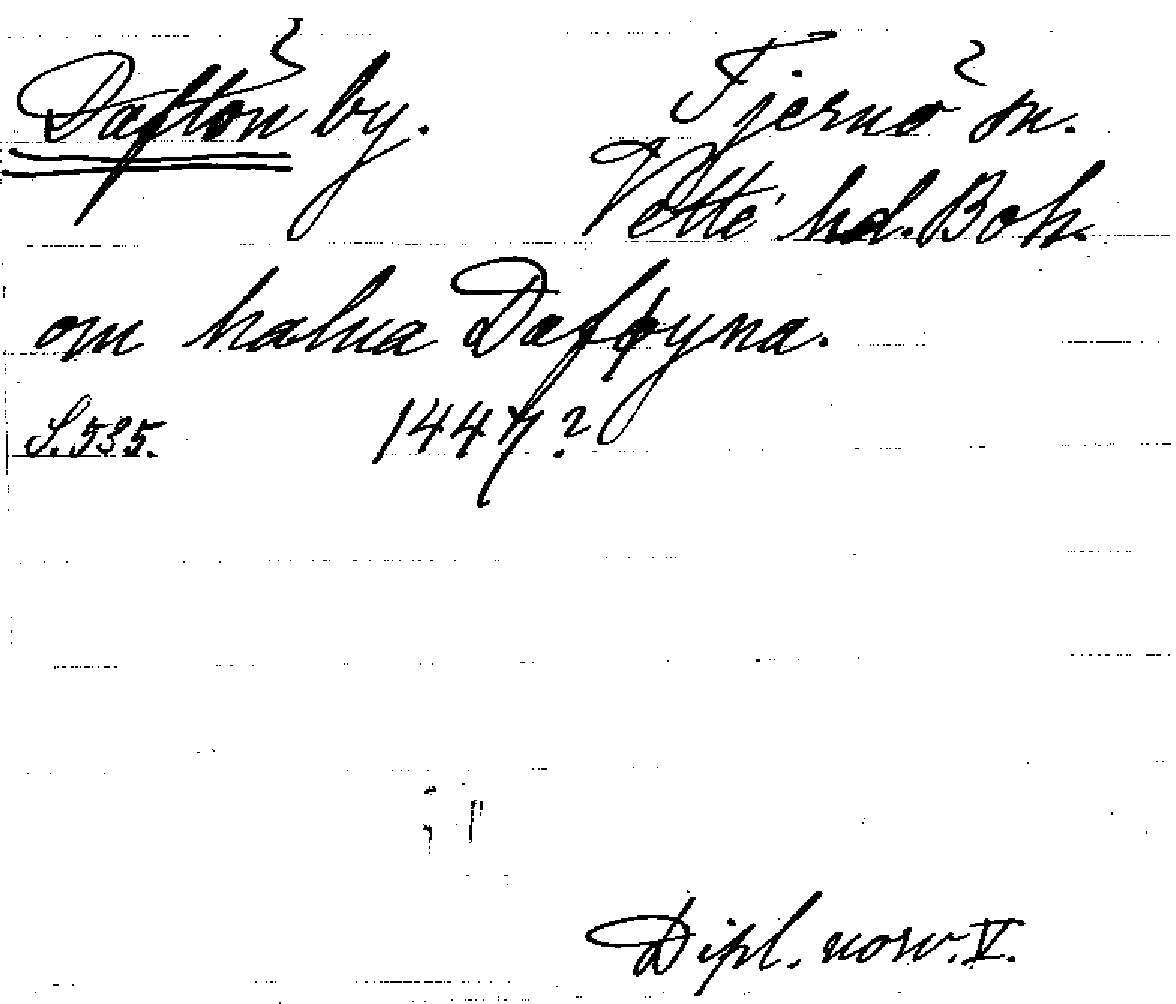 Daftön by. Tjernö sn.
Vette hd. Boh.
om halua Dafføyna.
S. 535. 1447?
Dipl. norv. V.